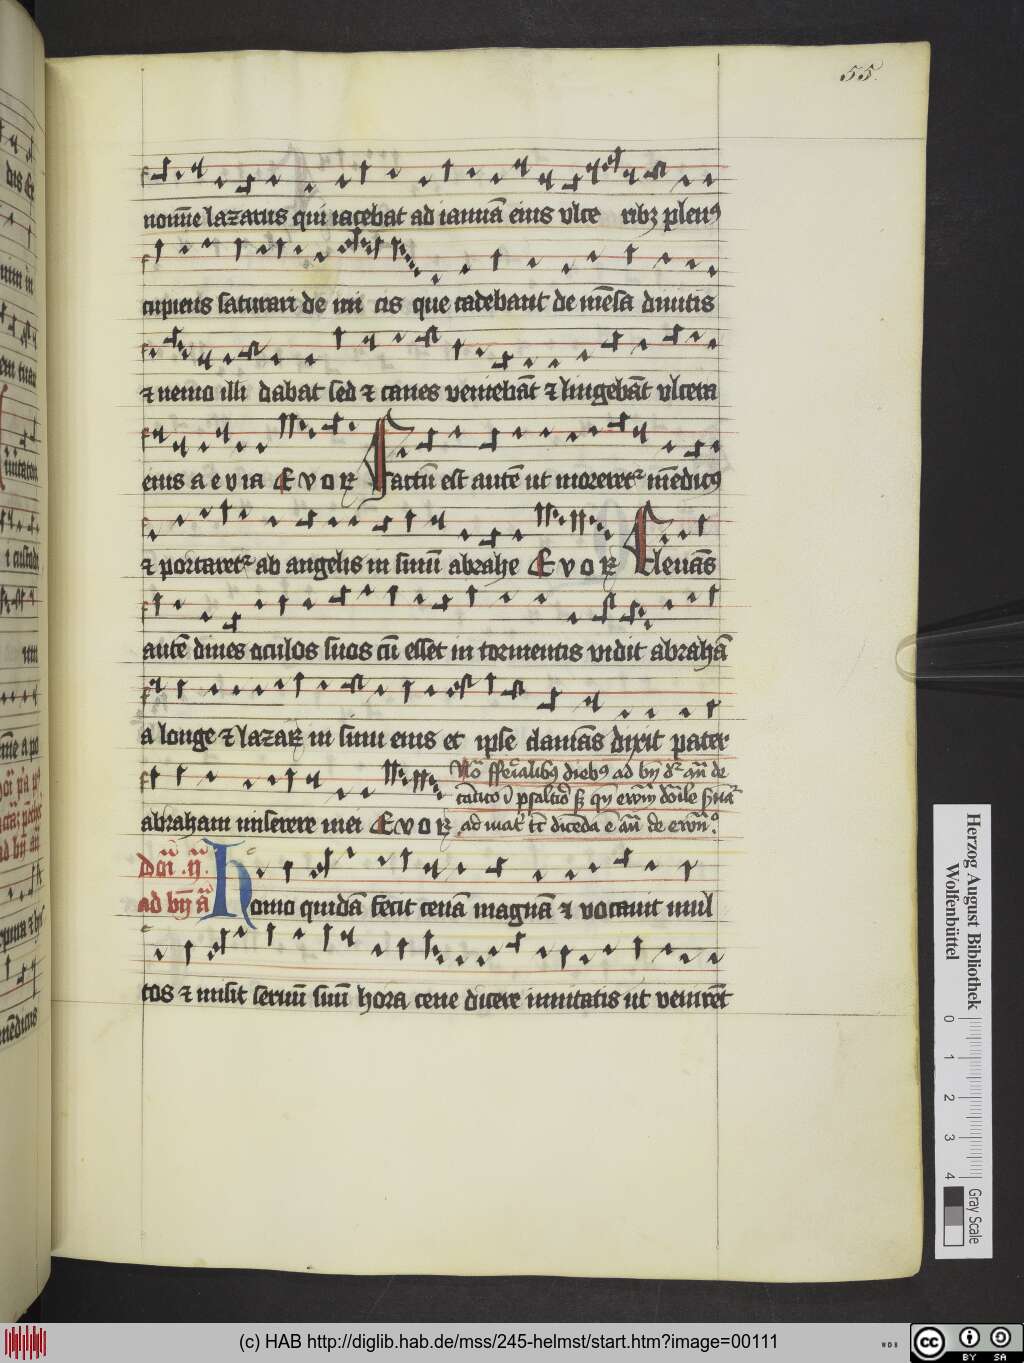 55.
nomīe lazarus qui iacebat ad ianuā eius vlce ribꝫ plenꝰ
cupiens saturari de mi cis que cadebant de mēsa diuitis
⁊ nemo illi dabat sed ⁊ canes veniebāt ⁊ lingebāt vlcera
eius a e v ia E v o ꝶ Factū est autē ut moreret᷑ mēdicꝰ
⁊ portaret᷑ ab angelis in sinū abrahe E v o ꝶ Eleuās
autē diues oculos suos cū esset in tormentis vidit abrahā
a longe ⁊ lazaꝶ in sinu eius et ipse clamās dixit pater
No ferialibꝰ diebꝰ ad bn̄ dr̄ an̄ de
abraham miserere mei E v o ꝶ
Doī .ii.
ad bn̄ ā
Homo quidā fecit cenā magnā ⁊ vocauit mul
tos ⁊ misit seruū suū hora cene dicere inuitatis ut venirēt
Herzog August Bibliothek
Wolfenbüttel
0 1 2 3 4
Gray Scale
(c) HAB http://diglib.hab.de/mss/245-helmst/start.htm?image=00111
WDB
cc BY SA